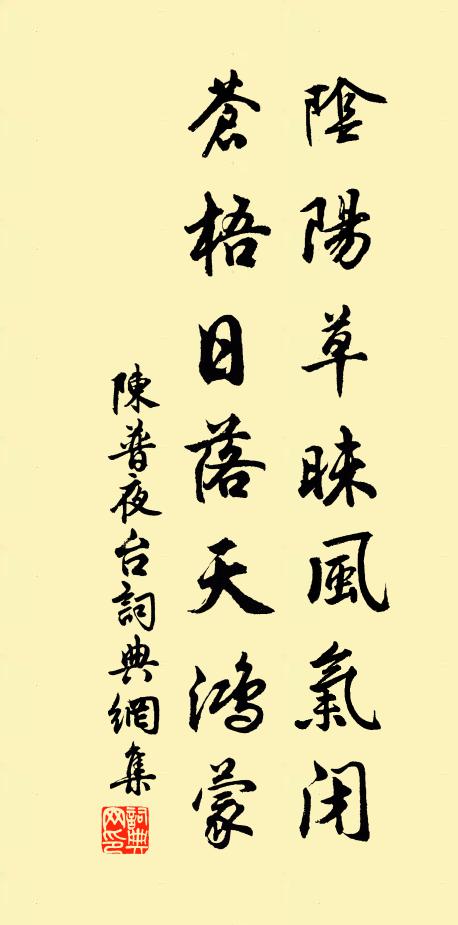 陰陽草昧風氣閉
蒼梧日落天鴻蒙
陳普夜台詞典網集
詞典网印